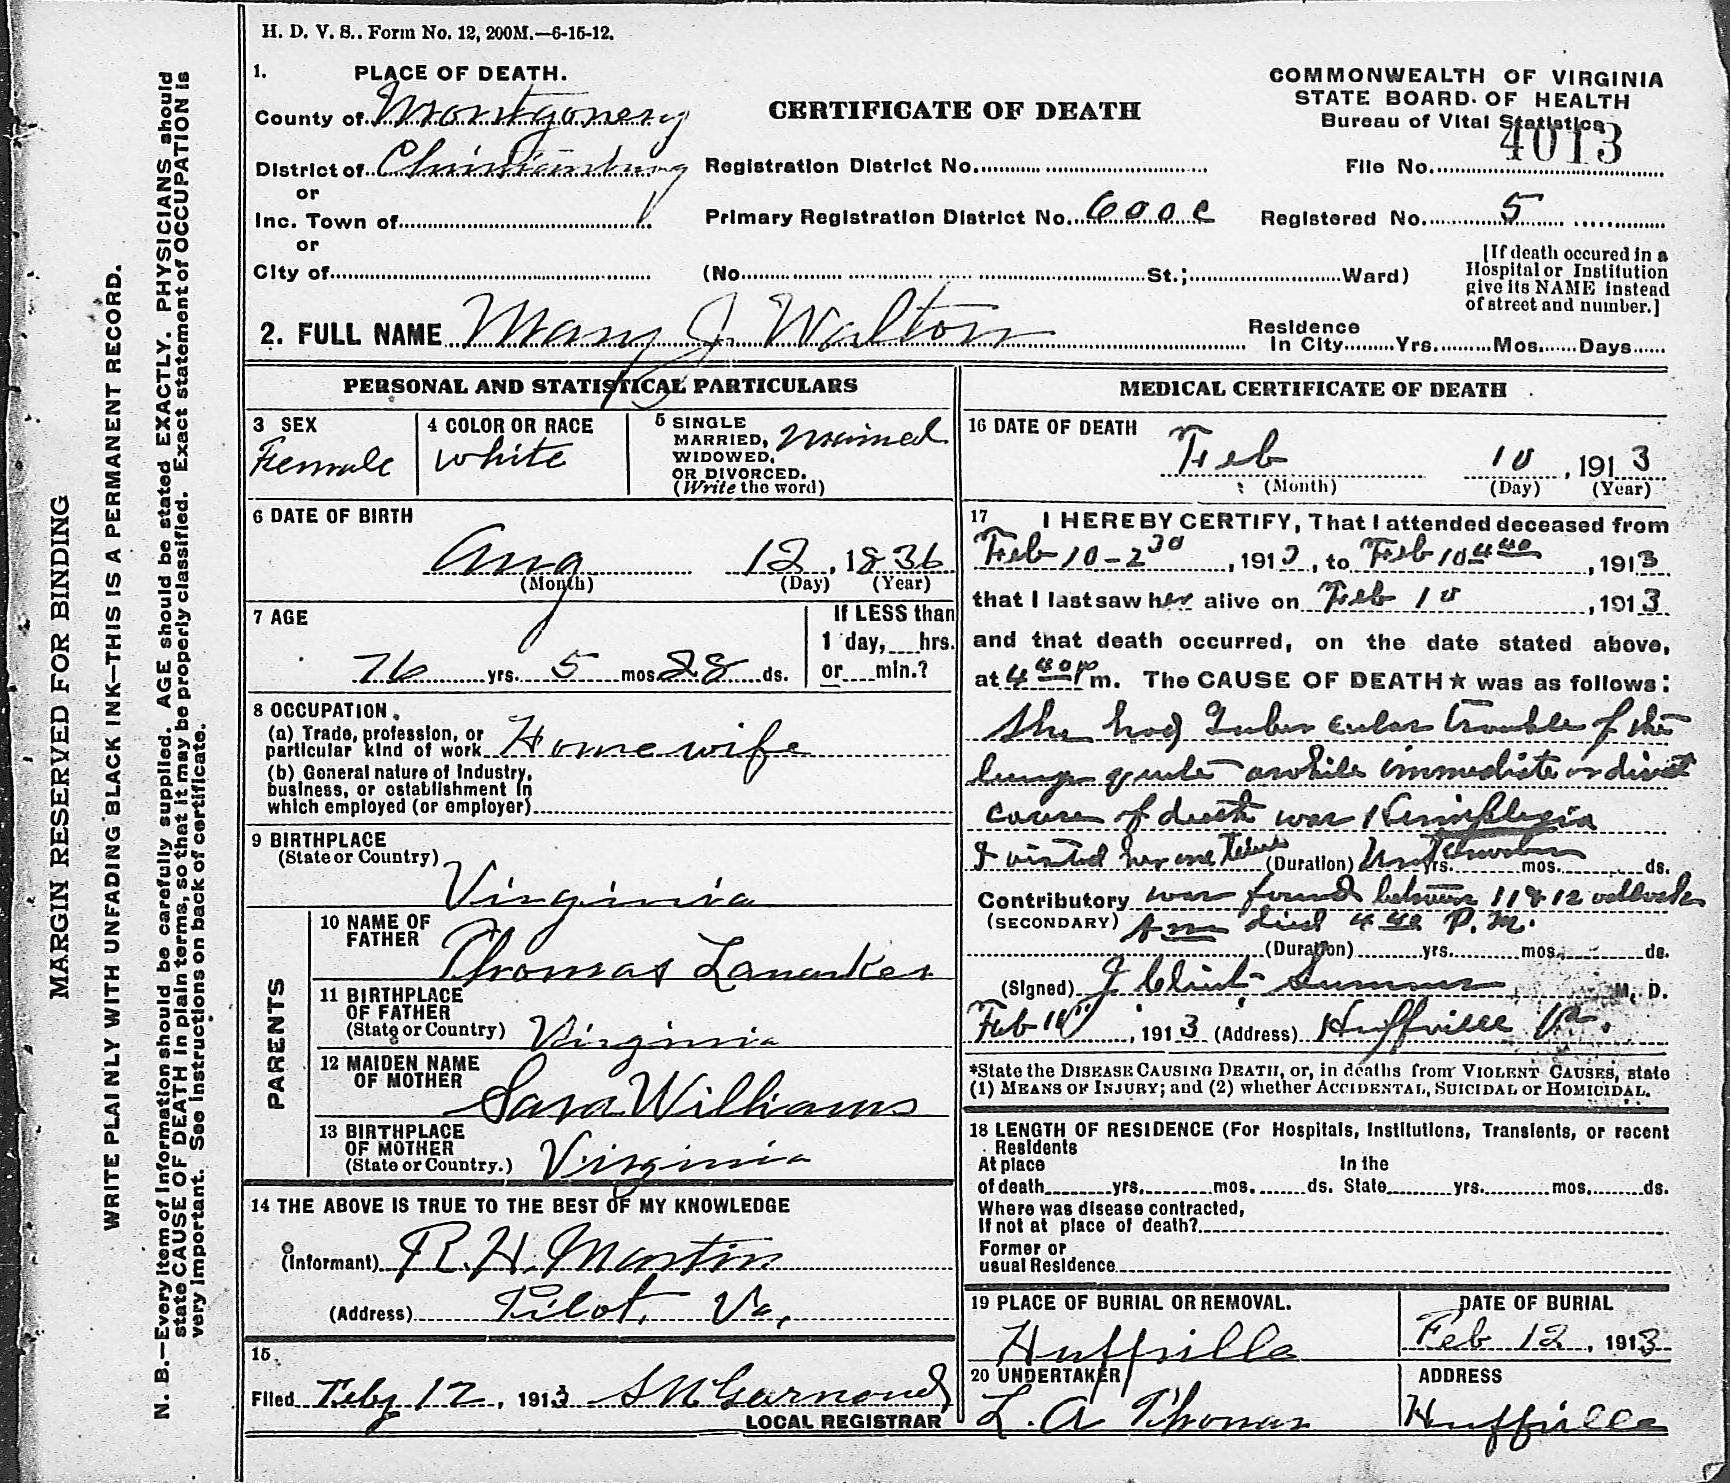 H. D. V. S.. Form No. 12, 200M.—6-15-12.
1. PLACE OF DEATH.
County of Montgomery
District of Christiansburg
or
Inc. Town of
or
City of
CERTIFICATE OF DEATH
Registration District No.
Primary Registration District No. 600c
(No. St.; Ward)
COMMONWEALTH OF VIRGINIA
STATE BOARD. OF HEALTH
Bureau of Vital Statistics
4013
File No.
Registered No. 5
[If death occured in a
Hospital or Institution
give its NAME instead
of street and number.]
2. FULL NAME Mary J. Walton
Residence
In City Yrs. Mos. Days
PERSONAL AND STATISTICAL PARTICULARS
3 SEX
Female
4 COLOR OR RACE
White
5 SINGLE
MARRIED,
WIDOWED,
OR DIVORCED.
(Write the word)
Married
6 DATE OF BIRTH
Aug 12, 1836
(Month) (Day) (Year)
7 AGE
76 yrs. 5 mos. 28 ds.
If LESS than
1 day, hrs.
or min.?
8 OCCUPATION.
(a) Trade, profession, or
particular kind of work Home wife
(b) General nature of Industry,
business, or establishment in
which employed (or employer)
9 BIRTHPLACE
(State or Country)
Virginia
PARENTS
10 NAME OF
FATHER
Thomas Lanarkes
11 BIRTHPLACE
OF FATHER
(State or Country) Virginia
12 MAIDEN NAME
OF MOTHER
Sara Williams
13 BIRTHPLACE
OF MOTHER
(State or Country.) Virginia
14 THE ABOVE IS TRUE TO THE BEST OF MY KNOWLEDGE
(Informant) R. H. Martin
(Address) Pilot, Va,
15
Filed Feby 12, 1913
LOCAL REGISTRAR
MEDICAL CERTIFICATE OF DEATH
16 DATE OF DEATH
Feb 10, 1913
(Month) (Day) (Year)
17 I HEREBY CERTIFY, That I attended deceased from
Feb 10 - 2 30, 1913, to Feb 10 4 40, 1913
that I last saw her alive on Feb 10, 1913
and that death occurred, on the date stated above,
at 4 40 P m. The CAUSE OF DEATH* was as follows:
She had Tubercular trouble of the
lungs quite awhile immediate or direct
cause of death was Hemiplegia
I visited her one time (Duration) Unknown yrs. mos. ds.
Contributory was found between 11 & 12 oclock
(SECONDARY) died 4 40 P.M.
(Duration) yrs. mos. ds.
(Signed) J Clint M. D.
Feb 10", 1913 (Address) Huffville Va.
*State the DISEASE CAUSING DEATH, or, in deaths from VIOLENT CAUSES, state
(1) MEANS OF INJURY; and (2) whether ACCIDENTAL, SUICIDAL or HOMICIDAL.
18 LENGTH OF RESIDENCE (For Hospitals, Institutions, Transients, or recent
Residents
At place In the
of death yrs. mos. ds. State yrs. mos. ds.
Where was disease contracted,
If not at place of death?
Former or
usual Residence
19 PLACE OF BURIAL OR REMOVAL.
Huffville
DATE OF BURIAL
Feb 12, 1913
20 UNDERTAKER
L. A Thomas
ADDRESS
Huffville
MARGIN RESERVED FOR BINDING
WRITE PLAINLY WITH UNFADING BLACK INK—THIS IS A PERMANENT RECORD.
N. B.—Every item of Information should be carefully supplied. AGE should be stated EXACTLY. PHYSICIANS should
state CAUSE OF DEATH in plain terms, so that it may be properly classified. Exact statement of OCCUPATION is
very important. See instructions on back of certificate.